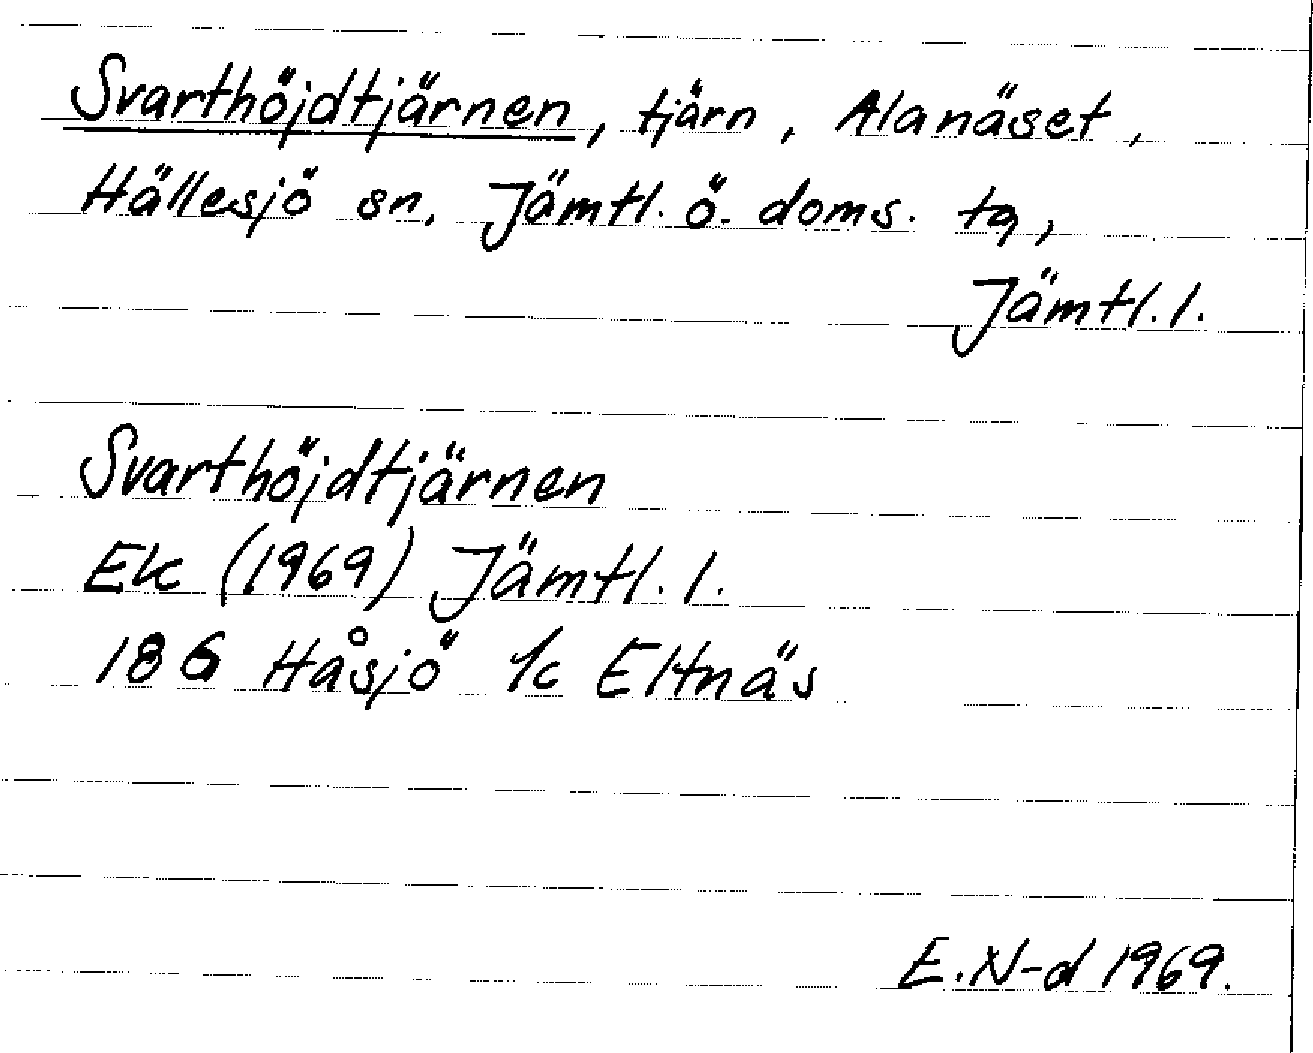 Svarthöjdtjärnen, tjärn, Alanäset,
Hällesjö sn, Jämtl. ö. doms. tg,
Jämtl. l.
Svarthöjdtjärnen
Ek (1969) Jämtl. l.
186 Håsjö 1c Eltnäs
E.N-d 1969.